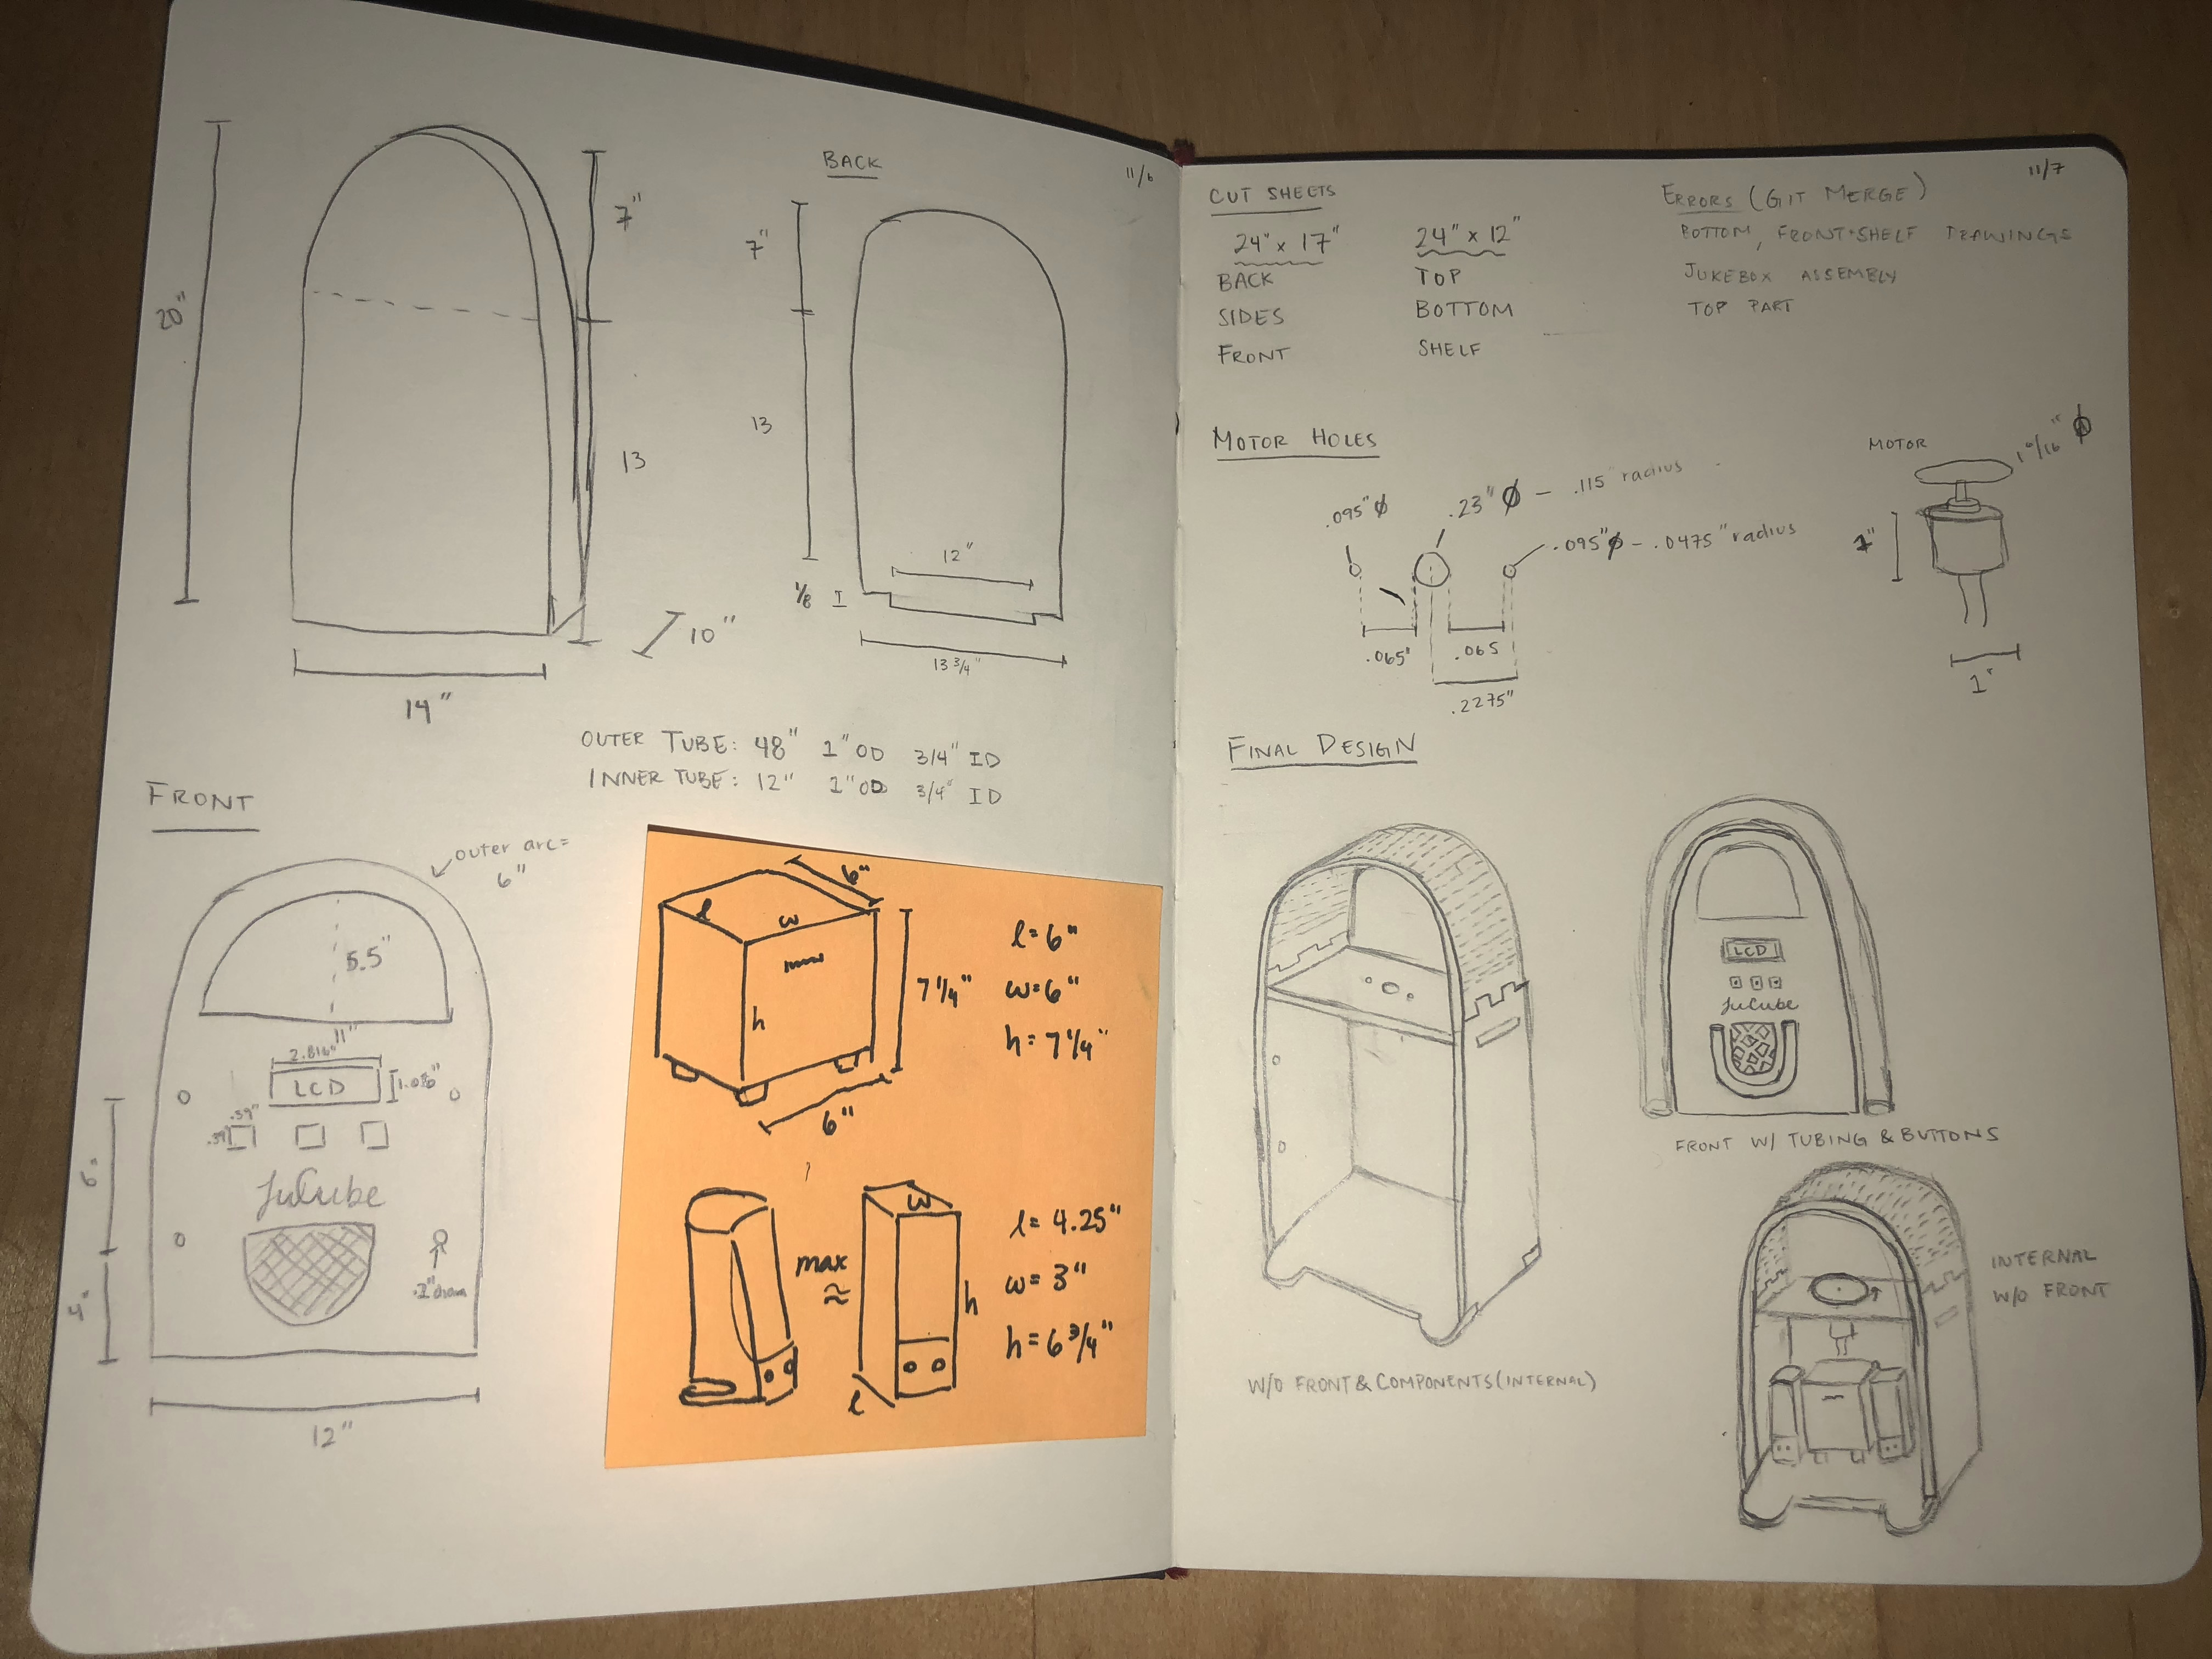 11/6
20"
14"
13
7"
10"
BACK
7"
13
1/8
12"
13 3/4"
OUTER TUBE: 48" 1" OD 3/4" ID
INNER TUBE: 12" 1" OD 3/4" ID
FRONT
6"
4"
12"
outer arc =
6"
5.5"
2.816"
LCD
1.086"
.59"
.39"
JuCube
.2" diam
l
w
h
6"
6"
7 1/4"
l = 6"
w = 6"
h = 7 1/4"
max
≈
l
w
h
l = 4.25"
w = 3"
h = 6 3/4"
11/7
CUT SHEETS
24" x 17"
BACK
SIDES
FRONT
24" x 12"
TOP
BOTTOM
SHELF
ERRORS (GIT MERGE)
BOTTOM, FRONT+SHELF DRAWINGS
JUKEBOX ASSEMBLY
TOP PART
MOTOR HOLES
.095" ⌀
.23" ⌀ - .115" radius
.095" ⌀ - .0475" radius
.065"
.065
.2275"
MOTOR
1"
1"
FINAL DESIGN
W/O FRONT & COMPONENTS (INTERNAL)
LCD
JuCube
FRONT W/ TUBING & BUTTONS
INTERNAL
W/O FRONT